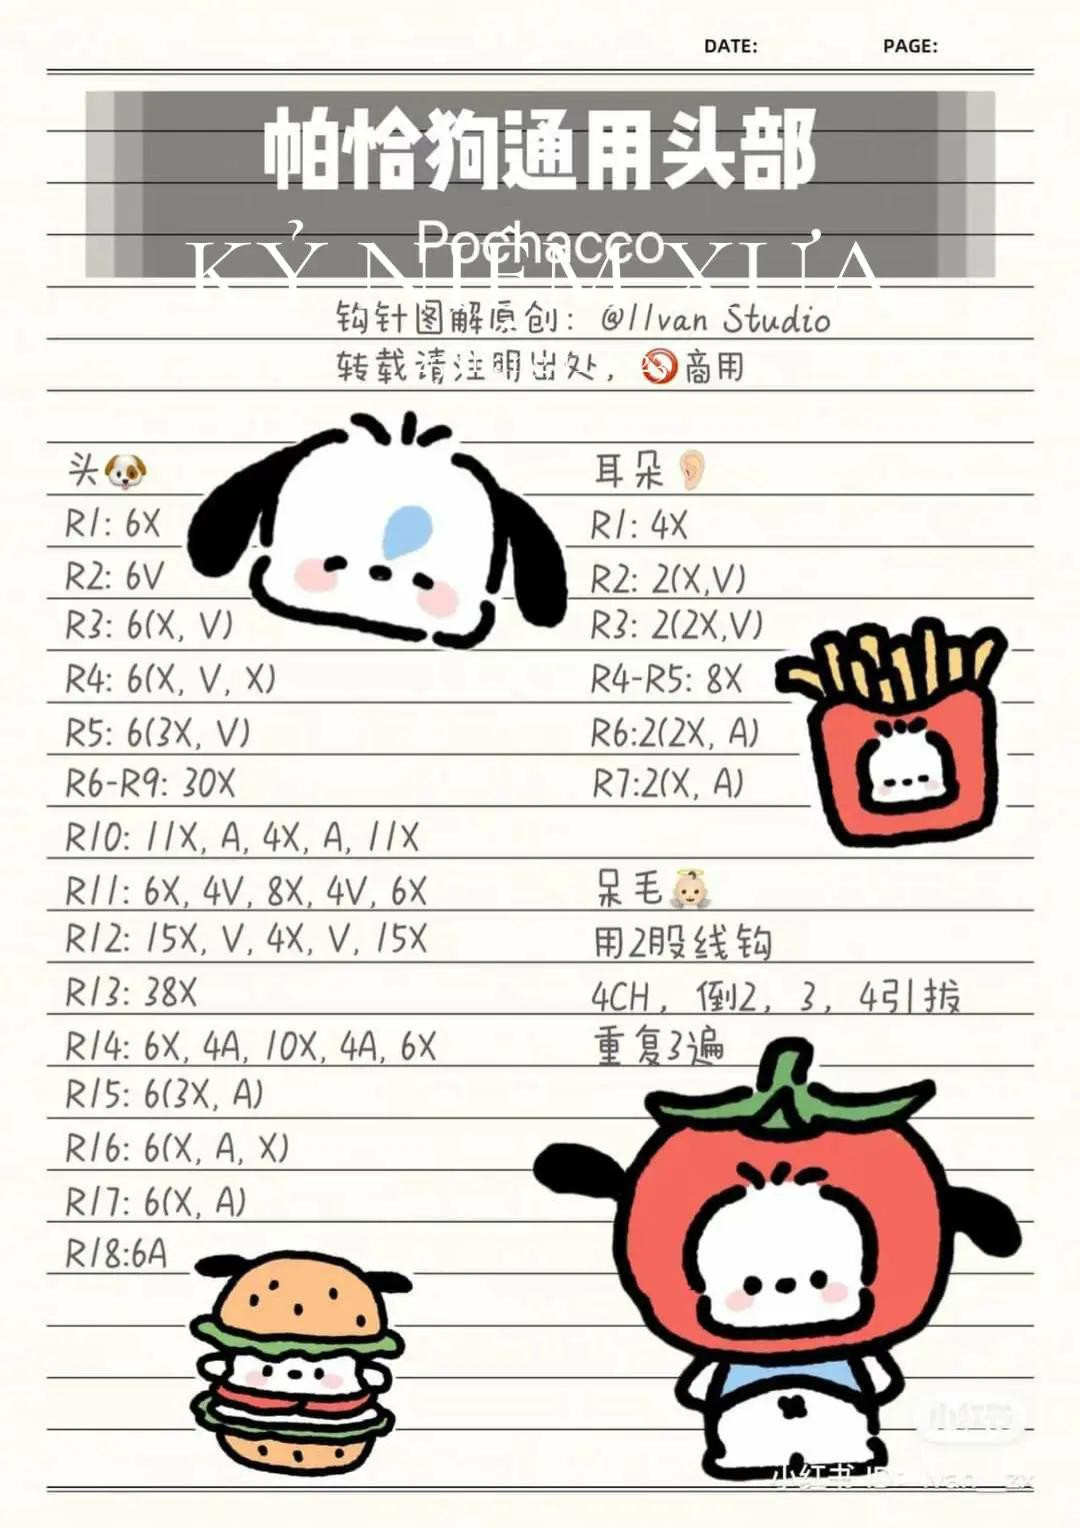 DATE: PAGE:
帕恰狗通用头部
Pochacco
KỶ NIỆM XƯA
钩针图解原创：@llvan Studio
转载请注明出处，🚫商用
头🐶
R1: 6X
R2: 6V
R3: 6(X, V)
R4: 6(X, V, X)
R5: 6(3X, V)
R6-R9: 30X
R10: 11X, A, 4X, A, 11X
R11: 6X, 4V, 8X, 4V, 6X
R12: 15X, V, 4X, V, 15X
R13: 38X
R14: 6X, 4A, 10X, 4A, 6X
R15: 6(3X, A)
R16: 6(X, A, X)
R17: 6(X, A)
R18:6A
耳朵👂
R1: 4X
R2: 2(X,V)
R3: 2(2X,V)
R4-R5: 8X
R6:2(2X, A)
R7:2(X, A)
呆毛👼
用2股线钩
4CH，倒2，3，4引拔
重复3遍
小红书
小红书 ID: